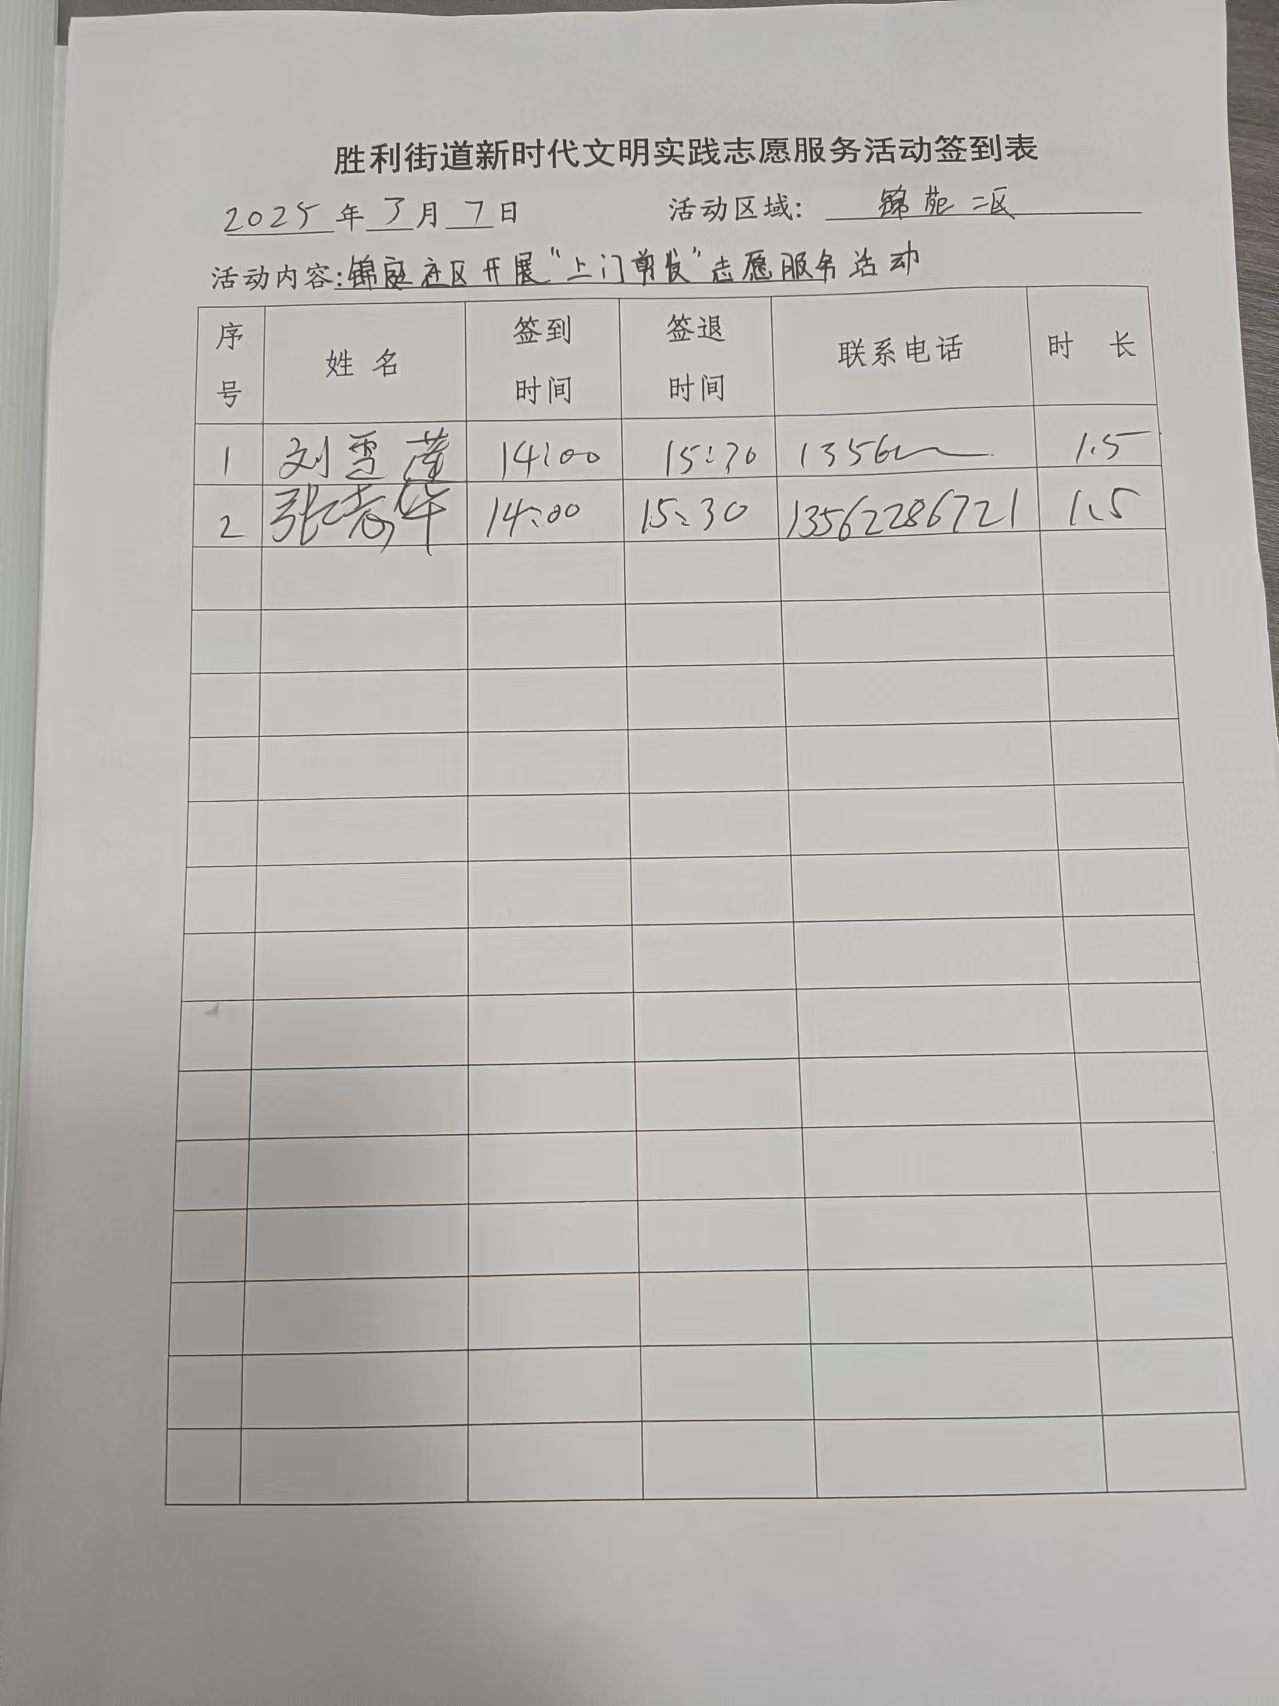 胜利街道新时代文明实践志愿服务活动签到表
2025年3月7日 活动区域: 锦苑二区
活动内容:锦庭社区开展"上门剪发"志愿服务活动
序号 姓名 签到时间 签退时间 联系电话 时长
1 刘雪莲 14:00 15:30 1356 1.5
2 张志华 14:00 15:30 13562286721 1.5